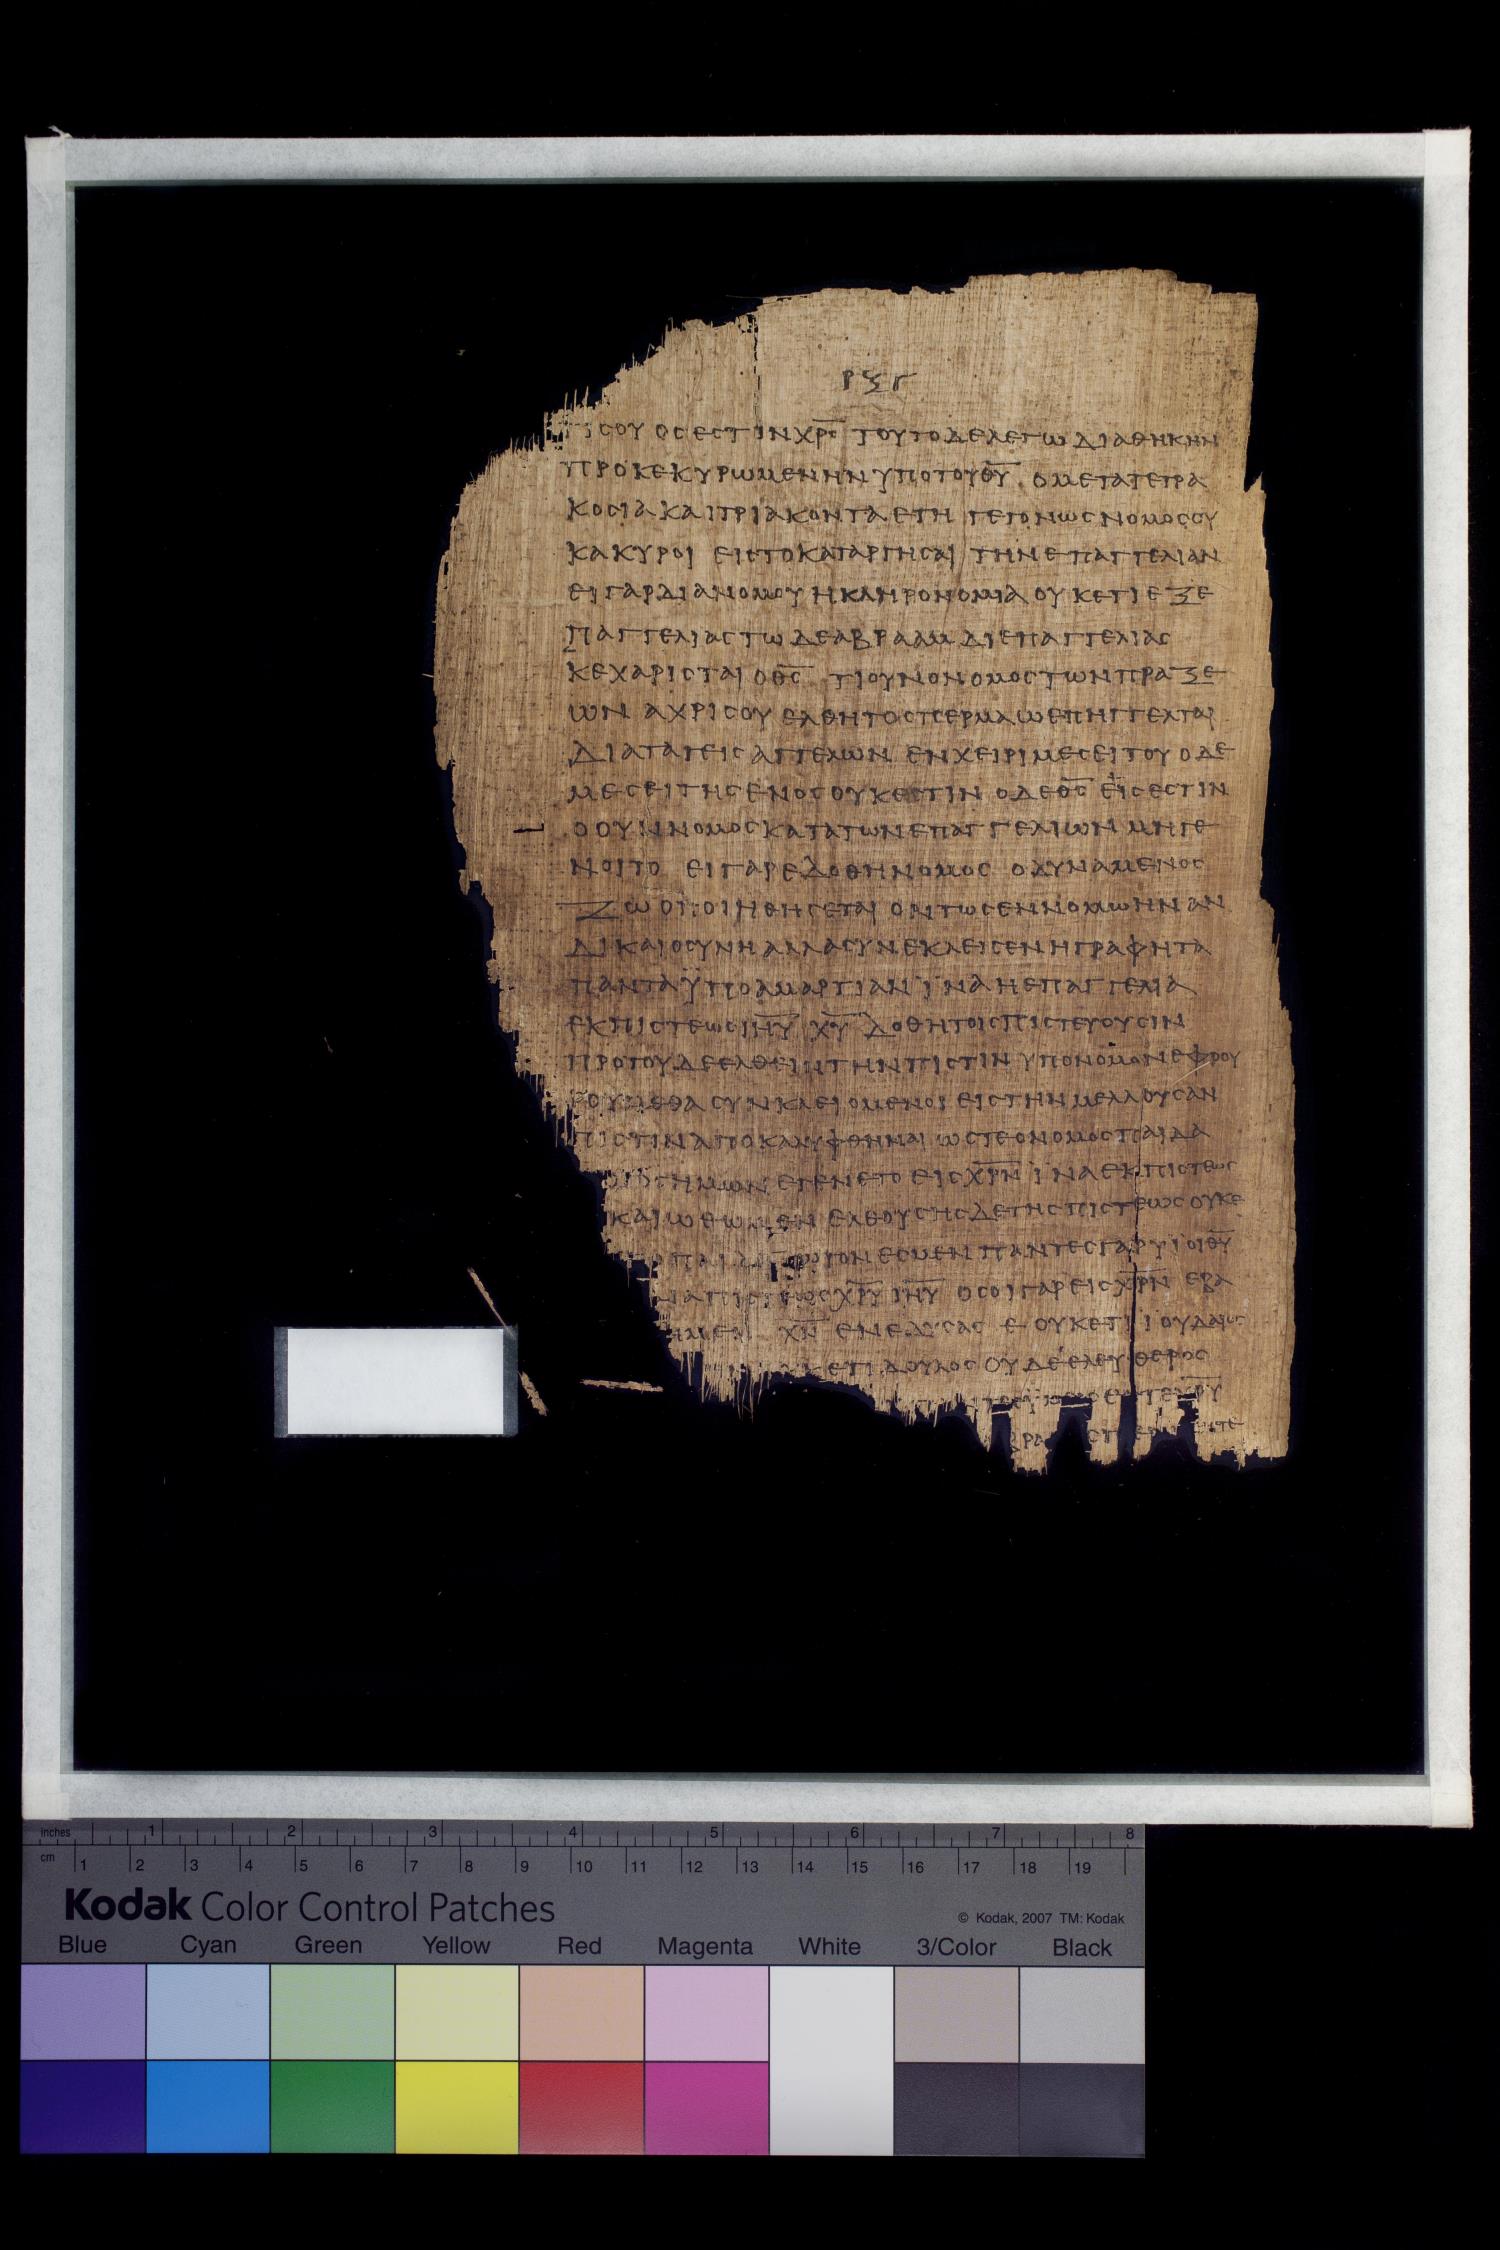 ΡΞΓ
ΣΟΥ ΟΣ ΕΣΤΙΝ ΧΡΣ ΤΟΥΤΟ ΔΕ ΛΕΓΩ ΔΙΑΘΗΚΗΝ
ΠΡΟΚΕΚΥΡΩΜΕΝΗΝ ΥΠΟ ΤΟΥ ΘΥ Ο ΜΕΤΑ ΤΕΤΡΑ
ΚΟΣΙΑ ΚΑΙ ΤΡΙΑΚΟΝΤΑ ΕΤΗ ΓΕΓΟΝΩΣ ΝΟΜΟΣ ΟΥ
Κ ΑΚΥΡΟΙ ΕΙΣ ΤΟ ΚΑΤΑΡΓΗΣΑΙ ΤΗΝ ΕΠΑΓΓΕΛΙΑΝ
ΕΙ ΓΑΡ ΔΙΑ ΝΟΜΟΥ Η ΚΛΗΡΟΝΟΜΙΑ ΟΥΚΕΤΙ ΕΞ Ε
ΠΑΓΓΕΛΙΑΣ ΤΩ ΔΕ ΑΒΡΑΑΜ ΔΙ ΕΠΑΓΓΕΛΙΑΣ
ΚΕΧΑΡΙΣΤΑΙ Ο ΘΣ ΤΙ ΟΥΝ Ο ΝΟΜΟΣ ΤΩΝ ΠΡΑΞΕ
ΩΝ ΑΧΡΙΣ ΟΥ ΕΛΘΗ ΤΟ ΣΠΕΡΜΑ Ω ΕΠΗΓΓΕΛΤΑΙ
ΔΙΑΤΑΓΕΙΣ ΑΓΓΕΛΩΝ ΕΝ ΧΕΙΡΙ ΜΕΣΕΙΤΟΥ Ο ΔΕ
ΜΕΣΕΙΤΗΣ ΕΝΟΣ ΟΥΚ ΕΣΤΙΝ Ο ΔΕ ΘΣ ΕΙΣ ΕΣΤΙΝ
Ο ΟΥΝ ΝΟΜΟΣ ΚΑΤΑ ΤΩΝ ΕΠΑΓΓΕΛΙΩΝ ΜΗ ΓΕ
ΝΟΙΤΟ ΕΙ ΓΑΡ ΕΔΟΘΗ ΝΟΜΟΣ Ο ΔΥΝΑΜΕΝΟΣ
ΖΩΟΠΟΙΗΘΗΣΕΤΑΙ ΟΝΤΩΣ ΕΝ ΝΟΜΩ ΗΝ ΑΝ
ΔΙΚΑΙΟΣΥΝΗ ΑΛΛΑ ΣΥΝΕΚΛΕΙΣΕΝ Η ΓΡΑΦΗ ΤΑ
ΠΑΝΤΑ ΫΠΟ ΑΜΑΡΤΙΑΝ ΪΝΑ Η ΕΠΑΓΓΕΛΙΑ
ΕΚ ΠΙΣΤΕΩΣ ΙΗΥ ΧΥ ΔΟΘΗ ΤΟΙΣ ΠΙΣΤΕΥΟΥΣΙΝ
ΠΡΟ ΤΟΥ ΔΕ ΕΛΘΕΙΝ ΤΗΝ ΠΙΣΤΙΝ ΥΠΟ ΝΟΜΟΝ ΕΦΡΟΥ
ΡΟΥΜΕΘΑ ΣΥΝΚΛΕΙΟΜΕΝΟΙ ΕΙΣ ΤΗΝ ΜΕΛΛΟΥΣΑΝ
ΠΙΣΤΙΝ ΑΠΟΚΑΛΥΦΘΗΝΑΙ ΩΣΤΕ Ο ΝΟΜΟΣ ΠΑΙΔΑ
ΓΟΣ ΗΜΩΝ ΕΓΕΝΕΤΟ ΕΙΣ ΧΡΝ ΪΝΑ ΕΚ ΠΙΣΤΕΩΣ
ΚΑΙΩΘΩΜΕΝ ΕΛΘΟΥΣΗΣ ΔΕ ΤΗΣ ΠΙΣΤΕΩΣ ΟΥΚΕ
ΠΑΙΔΑΓΩΓΟΝ ΕΣΜΕΝ ΠΑΝΤΕΣ ΓΑΡ ΥΙΟΙ ΘΥ
ΠΙΣΤΕΩΣ ΧΡΥ ΙΗΥ ΟΣΟΙ ΓΑΡ ΕΙΣ ΧΡΝ ΕΒΑ
ΧΝ ΕΝΕΔΥΣΑΣΘΕ ΟΥΚΕΤΙ ΙΟΥΔΑΙΟΣ
ΚΕΤΙ ΔΟΥΛΟΣ ΟΥΔΕ ΕΛΕΥΘΕΡΟΣ
ΧΡΥ
ΒΡΑ
inches 1 2 3 4 5 6 7 8
cm 1 2 3 4 5 6 7 8 9 10 11 12 13 14 15 16 17 18 19
Kodak Color Control Patches
© Kodak, 2007 TM: Kodak
Blue Cyan Green Yellow Red Magenta White 3/Color Black